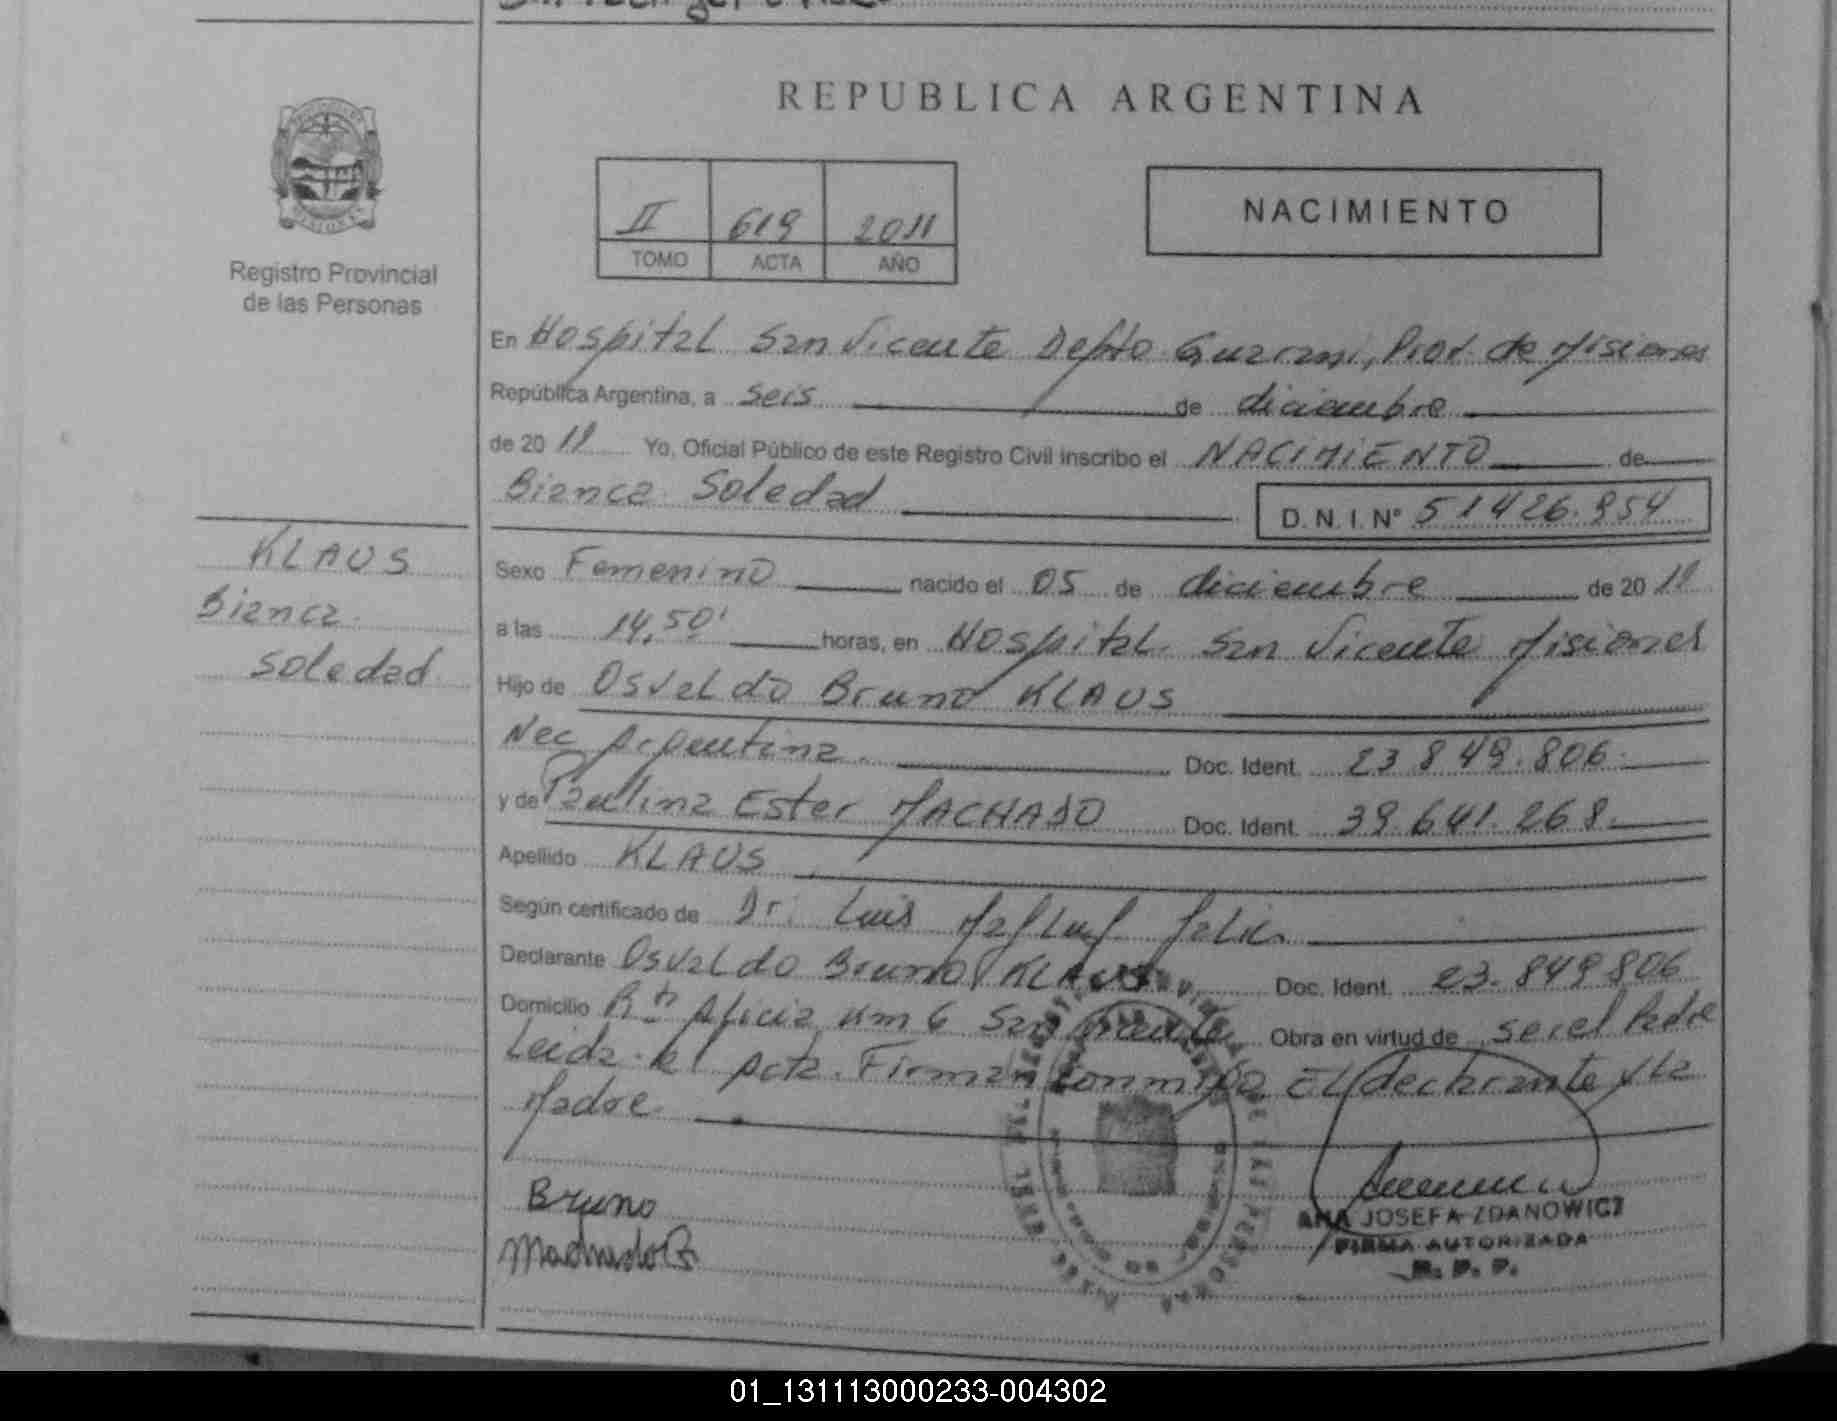 REPUBLICA ARGENTINA
II 619 2011
TOMO ACTA AÑO
NACIMIENTO
Registro Provincial
de las Personas
En Hospital San Vicente Depto Guarani, Prov. de Misiones
República Argentina, a seis de diciembre
de 20 11 Yo, Oficial Público de este Registro Civil inscribo el NACIMIENTO de
Bianca Soledad D. N. I. N° 51426.954
KLAUS
Bianca
Soledad
Sexo Femenino nacido el 05 de diciembre de 20 11
a las 14,50' horas, en Hospital San Vicente Misiones
Hijo de Osvaldo Bruno KLAUS
Nac Argentina Doc. Ident. 23 849.806
y de Paulina Ester MACHADO Doc. Ident. 39.641.268.
Apellido KLAUS
Según certificado de Dr. Luis
Declarante Osvaldo Bruno KLAUS Doc. Ident. 23.849806
Domicilio Km 6 San Vicente Obra en virtud de ser el Padre
Leida el Acta. Firman conmigo El declarante y La
Madre
Bruno
Machado
ANA JOSEFA ZDANOWICZ
FIRMA AUTORIZADA
R. P. P.
01_131113000233-004302